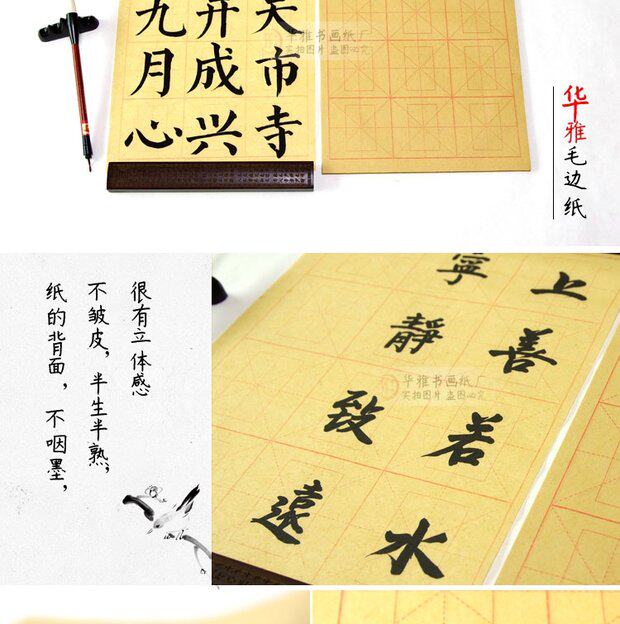 市寺
成兴
九月心
华雅书画纸厂
实拍图片 盗图必究
华雅毛边纸
纸的背面，不咽墨，
不皱皮，半生半熟，
很有立体感
上善若水
寧靜致遠
华雅书画纸厂
实拍图片 盗图必究